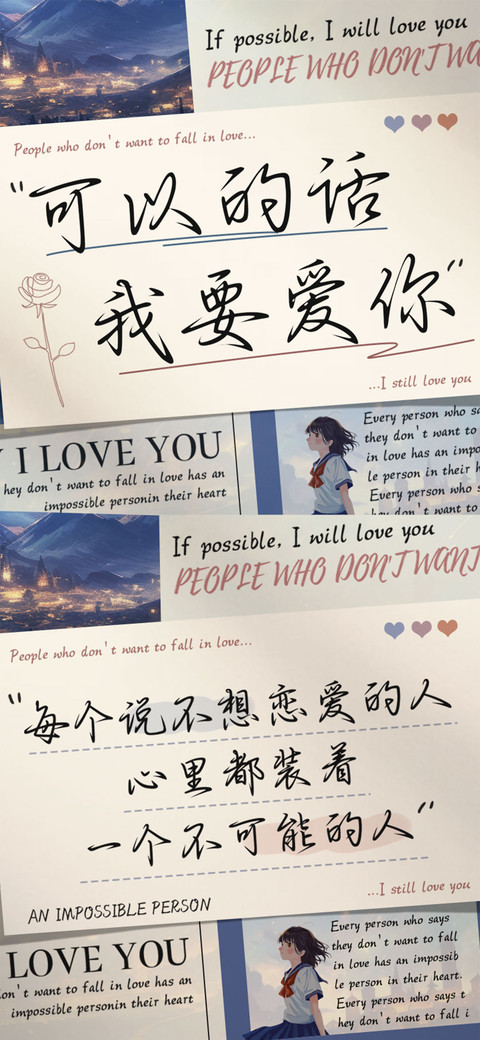 If possible, I will love you
PEOPLE WHO DON'T WA
People who don't want to fall in love...
"可以的话
我要爱你"
...I still love you
Y I LOVE YOU
hey don't want to fall in love has an
impossible personin their heart
Every person who sa
they don't want to
in love has an impo
le person in their h
Every person who s
hey don't want to
If possible, I will love you
PEOPLE WHO DON'T WANT
People who don't want to fall in love...
"每个说不想恋爱的人
心里都装着
一个不可能的人"
...I still love you
AN IMPOSSIBLE PERSON
LOVE YOU
on't want to fall in love has an
impossible personin their heart
Every person who says
they don't want to fall
in love has an impossib
le person in their heart.
Every person who says t
hey don't want to fall i